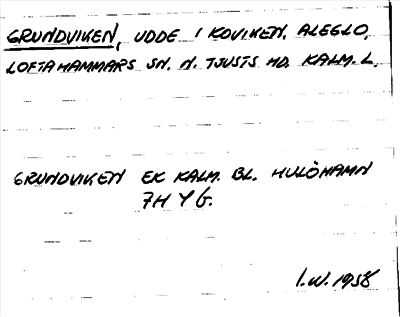 GRUNDVIKEN, UDDE I KOVIKEN. ALEGLO.
LOFTAHAMMARS SN. N. TJUSTS HD. KALM. L.
GRUNDVIKEN EK KALM. BL. HULÖHAMN
7H Y G.
I.W. 1958